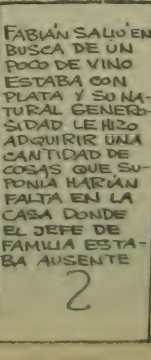 FABIÁN SALIÓ EN
BUSCA DE UN
POCO DE VINO
ESTABA CON
PLATA Y SU NA-
TURAL GENERO-
SIDAD LE HIZO
ADQUIRIR UNA
CANTIDAD DE
COSAS QUE SU-
PONIA HARIAN
FALTA EN LA
CASA DONDE
EL JEFE DE
FAMILIA ESTA-
BA AUSENTE
2